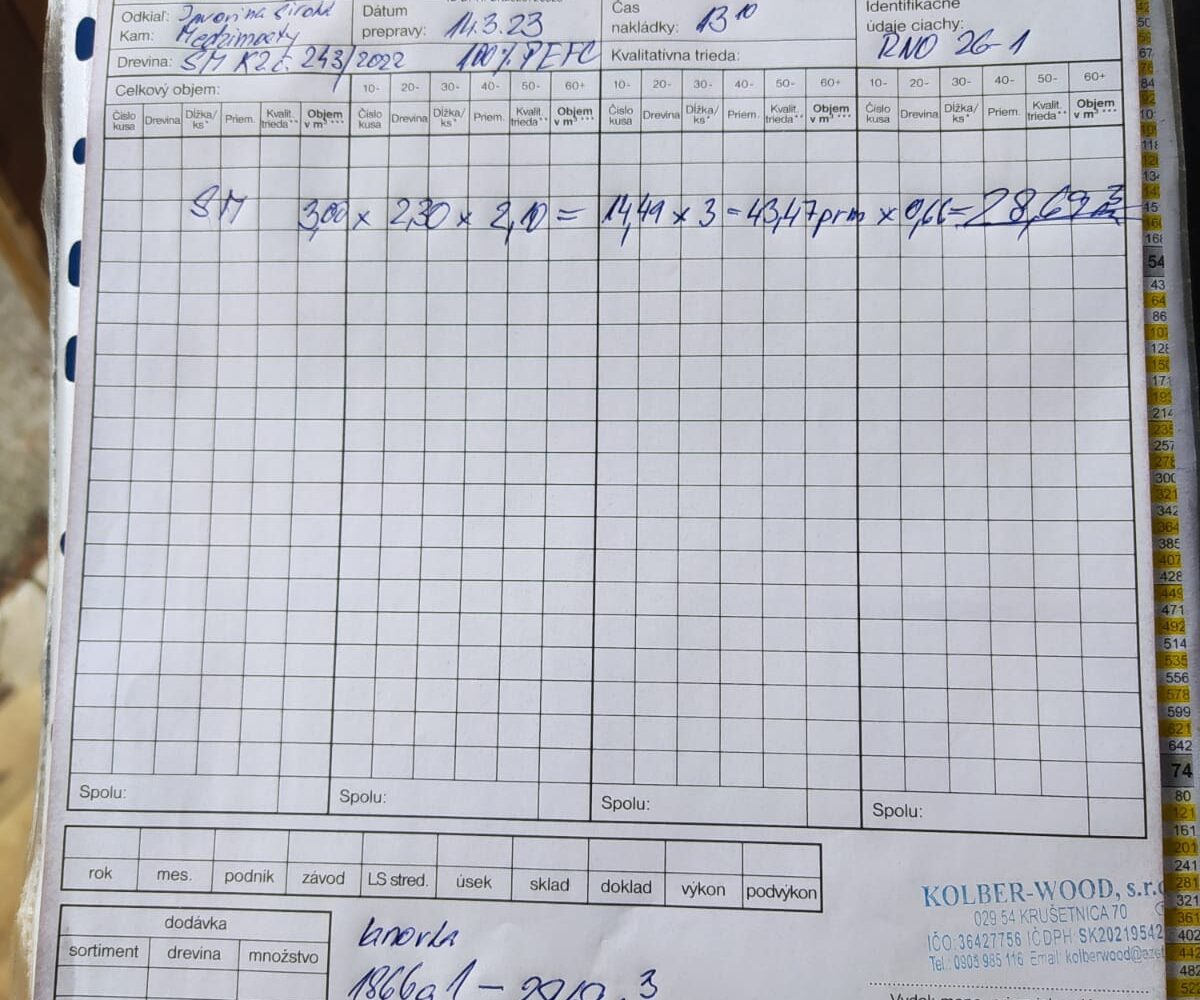 Odkiaľ: Javorina Široká
Kam: Medzimosty
Dátum prepravy: 14.3.23
Čas nakládky: 13 10
Identifikačné údaje ciachy: RNO 26-1
Drevina: SM K2.č. 243/2022 100% PEFC
Kvalitatívna trieda:
Celkový objem:
10- 20- 30- 40- 50- 60+
10- 20- 30- 40- 50- 60+
10- 20- 30- 40- 50- 60+
Číslo kusa Drevina Dĺžka/ks* Priem. Kvalit. trieda** Objem v m³ ***
Číslo kusa Drevina Dĺžka/ks* Priem. Kvalit. trieda** Objem v m³ ***
Číslo kusa Drevina Dĺžka/ks* Priem. Kvalit. trieda** Objem v m³ ***
Číslo kusa Drevina Dĺžka/ks* Priem. Kvalit. trieda** Objem v m³ ***
SM 3,00 x 2,30 x 2,10 = 14,49 x 3 = 43,47 prm x 0,66 = 28,69 m³
Spolu: Spolu: Spolu: Spolu:
rok mes. podnik závod LS stred. úsek sklad doklad výkon podvýkon
dodávka
sortiment drevina množstvo
KOLBER-WOOD, s.r.o
029 54 KRUŠETNICA 70
IČO: 36427756 IČ DPH: SK20219542
Tel.: 0905 985 116 Email: kolberwood@
1866a1 —
54
43
64
86
107
128
150
171
193
214
235
257
278
300
321
342
364
385
407
428
449
471
492
514
535
556
578
599
621
642
74
80
121
161
201
241
281
321
361
402
442
482